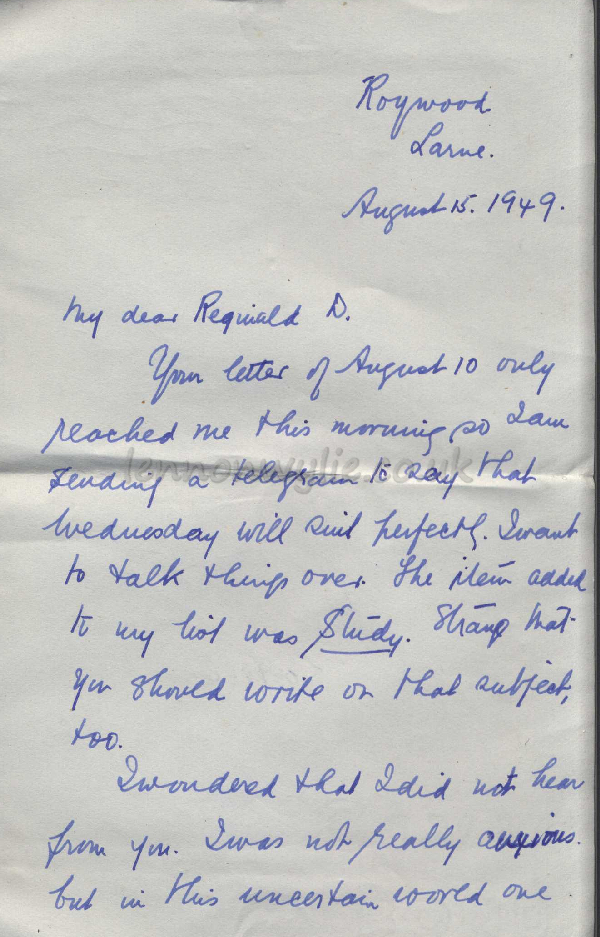 Roywood
Larne.
August 15. 1949.
My dear Reginald D.
Your letter of August 10 only
reached me this morning, so I am
sending a telegram to say that
Wednesday will suit perfectly. I want
to talk things over. The item added
to my list was Study. Strange that
you should write on that subject,
too.
I wondered that I did not hear
from you. I was not really anxious.
but in this uncertain world one
lennonwylie.co.uk